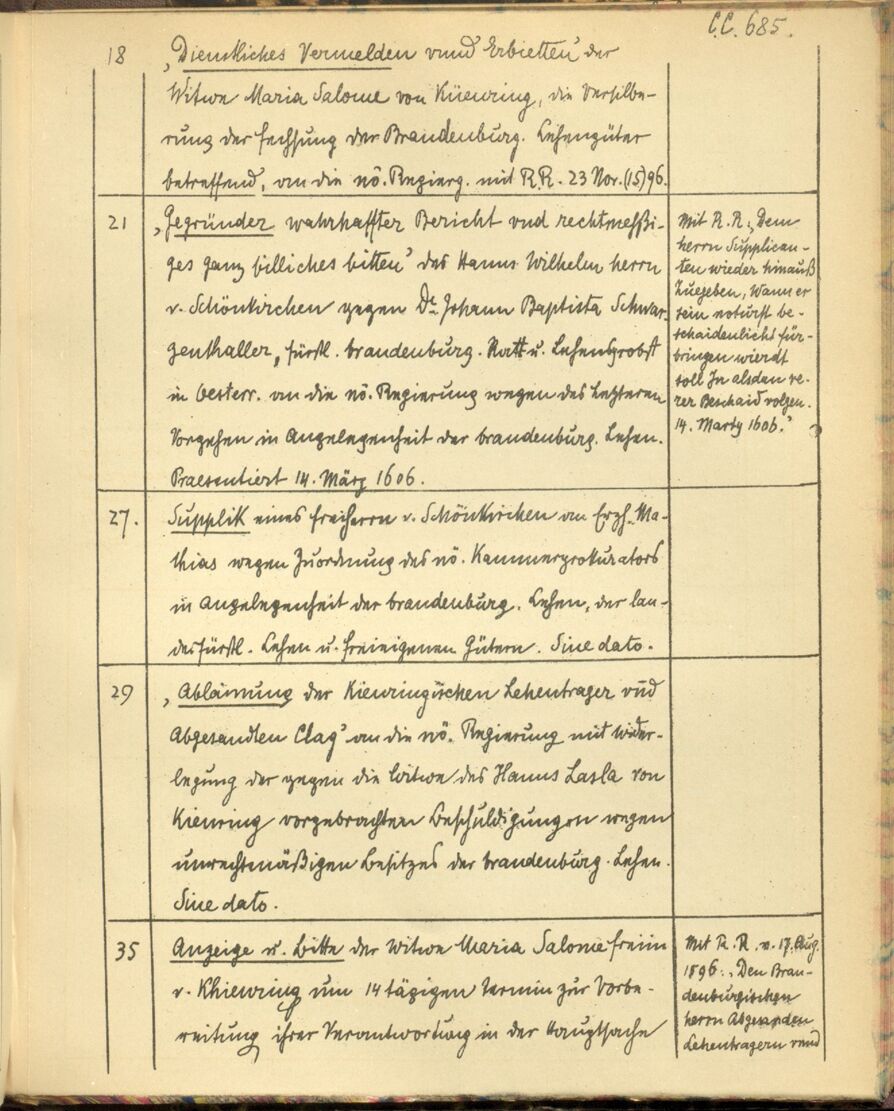 C.C. 685.
18 „Dienstliches Vermelden vnnd Erbietten" der
Witwe Maria Salome von Küenring, die Versilbe-
rung der Fechsung der Brandenburg. Lehengüter
betreffend, an die nö. Regierg. mit R.R. 23 Nov. (15)96.
21 „Gegründer wahrhaffter Bericht vnd rechtmeßsi-
ges ganz billiches bitten" des Hanns Wilhelm herrn
v. Schönkirchen gegen Dr. Johann Baptista Schwar-
zenthaller, fürstl. brandenburg. Ratt u. Lehensprobst
in Oesterr. an die nö. Regierung wegen des Letzteren
Vorgehen in Angelegenheit der brandenburg. Lehen.
Praesentiert 14. März 1606.
Mit R.R: „Dem
herrn Supplican-
ten wieder hinauß
Zuegeben, Wann er
sein noturft be-
schaidenlicht für-
bringen wierdt
soll Jn alsdan ve-
rer Beschaid volgen.
14. Marty 1606."
27. Supplik eines Freiherrn v. Schönkirchen an Erzh. Ma-
thias wegen Zuordnung des nö. Kammerprokurators
in Angelegenheit der brandenburg. Lehen, der lan-
desfürstl. Lehen u. freieigenen Gütern. Sine dato.
29 „Ablainung der Kienringischen Lehentrager vnd
Abgesandten Clag" an die nö. Regierung mit Wider-
legung der gegen die Witwe des Hanns Lasla von
Kienring vorgebrachten Beschuldigungen wegen
unrechtmäßigen Besitzes der brandenburg. Lehen.
Sine dato.
35 Anzeige u. Bitte der Witwe Maria Salome freiin
v. Khienring um 14 tägigen Termin zur Vorbe-
reitung ihrer Verantwortung in der Hauptsache
Mit R.R. v. 17. Aug.
1596: „Den Bran-
denburgischen
herrn Abgesanden
Lehentragern vnnd